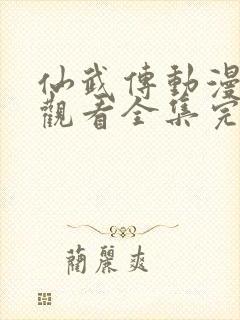 仙武傳動漫
觀看全集完
蘭麗爽